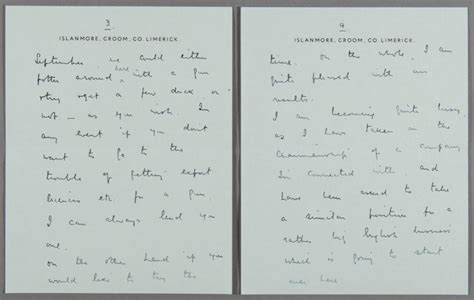 3.
ISLANMORE, CROOM, CO. LIMERICK.
September, we could either
potter around here with a gun
& try & get a few duck or
not — as you wish. In
any event if you don't
want to go to the
trouble of getting export
licences etc for a gun.
I can always lend you
one.
On the other hand if you
would like to try the
4
ISLANMORE, CROOM, CO. LIMERICK.
time. On the whole, I am
quite pleased with our
results.
I am becoming quite busy,
as I have taken on the
Chairmanship of a company
I'm connected with and
have been asked to take
a similar position for a
rather big English business
which is going to start
over here